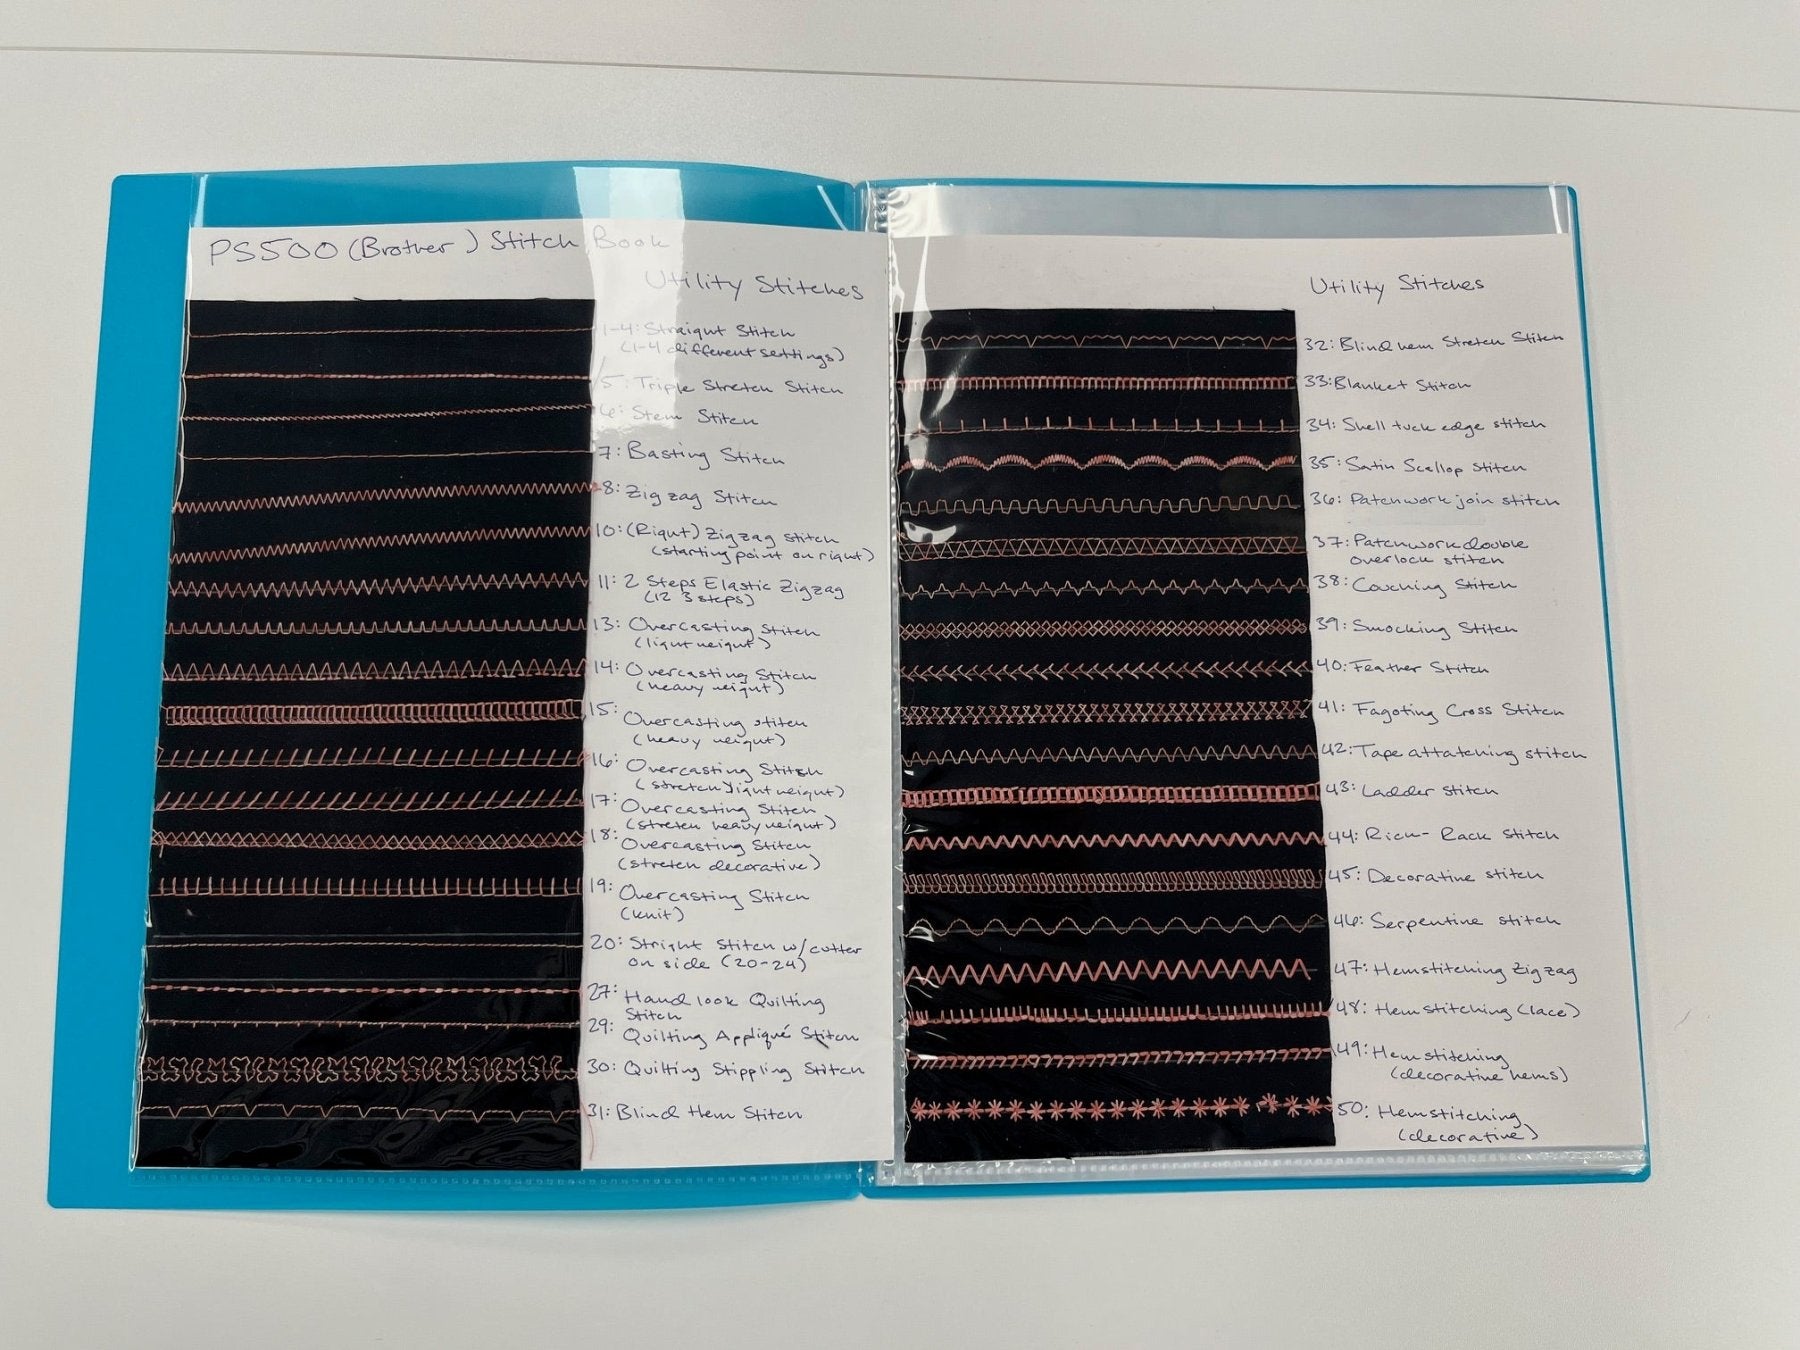 PS500 (Brother) Stitch Book
Utility Stitches
1-4: Straight Stitch
(1-4 different settings)
5: Triple Stretch Stitch
6: Stem Stitch
7: Basting Stitch
8: Zig zag Stitch
10: (Right) Zigzag stitch
(starting point on right)
11: 2 Steps Elastic Zigzag
(12 3 steps)
13: Overcasting Stitch
(light weight)
14: Overcasting Stitch
(heavy weight)
15: Overcasting stitch
(heavy weight)
16: Overcasting Stitch
(stretch) light weight)
17: Overcasting Stitch
(stretch heavy weight)
18: Overcasting Stitch
(stretch decorative)
19: Overcasting Stitch
(knit)
20: Stright Stitch w/cutter
on side (20-24)
27: Hand look Quilting
Stitch
29: Quilting Appliqué Stitch
30: Quilting Stippling Stitch
31: Blind Hem Stitch
Utility Stitches
32: Blind hem Stretch Stitch
33: Blanket Stitch
34: Shell tuck edge stitch
35: Satin Scallop stitch
36: Patchwork join stitch
37: Patchwork double
overlock stitch
38: Couching Stitch
39: Smocking Stitch
40: Feather Stitch
41: Fagoting Cross Stitch
42: Tape attatching stitch
43: Ladder Stitch
44: Rick-Rack Stitch
45: Decorative stitch
46: Serpentine stitch
47: Hemstitching Zigzag
48: Hemstitching (lace)
49: Hemstitching
(decorative hems)
50: Hemstitching
(decorative)